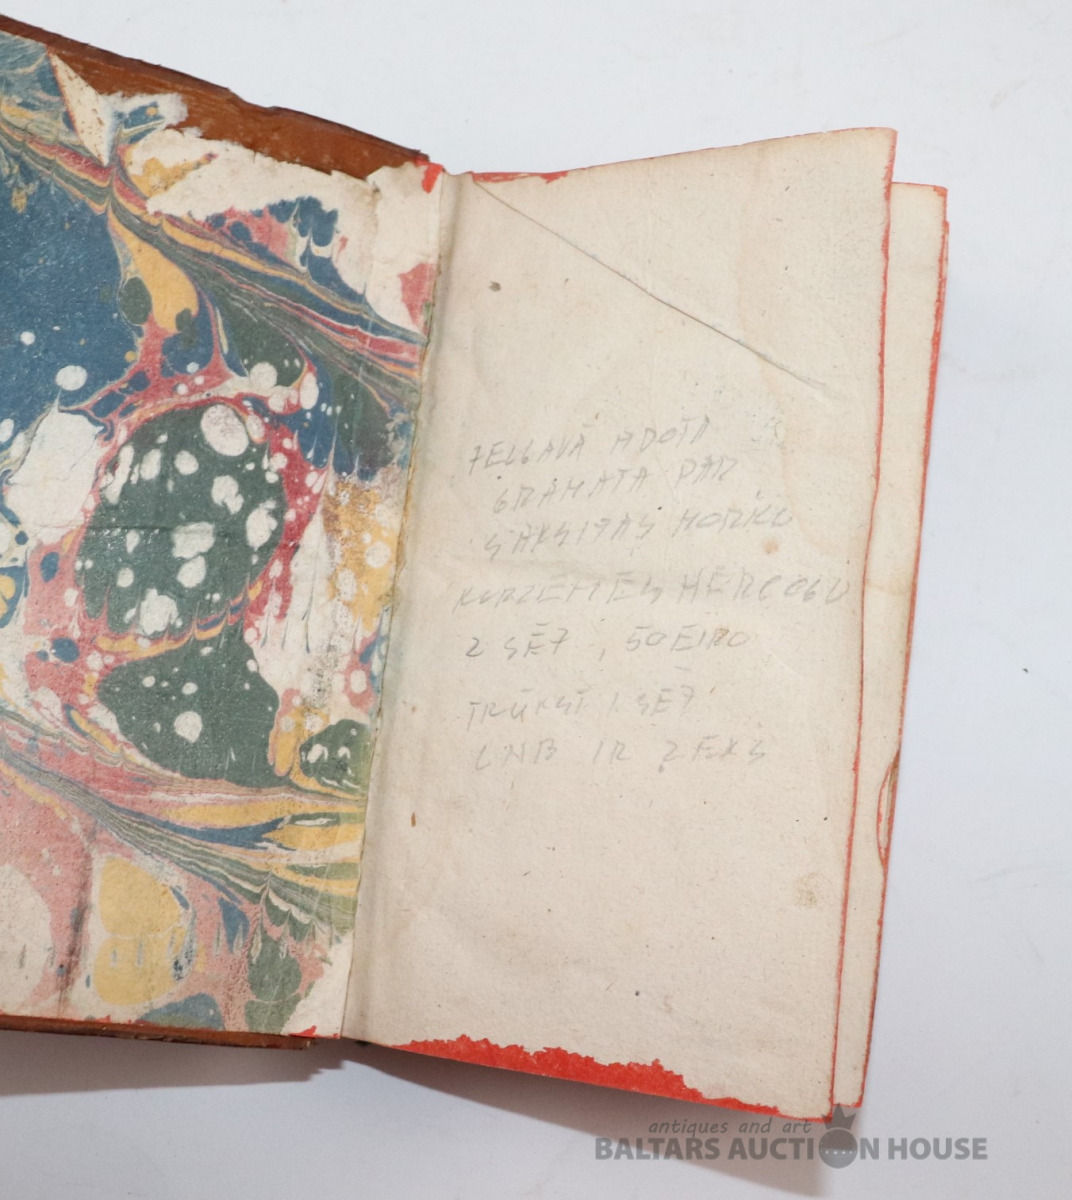 JELGAVĀ ADOTA
GRAMATA PAR
SAKSIJAS MORICU
KURZEMES HERCOGU
2 SĒJ, 50 EIRO
TRŪKST 1 SĒJ
LNB IR 2 EKS
antiques and art
BALTARS AUCTION HOUSE